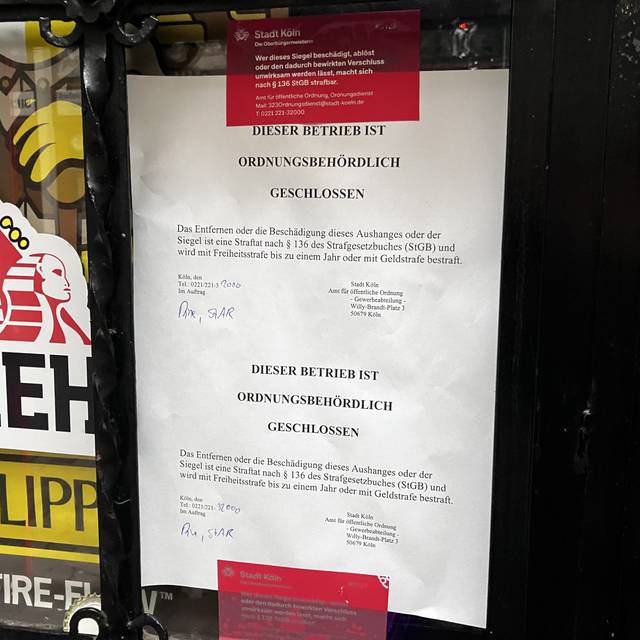 Stadt Köln
Die Oberbürgermeisterin
Wer dieses Siegel beschädigt, ablöst
oder den dadurch bewirkten Verschluss
unwirksam werden lässt, macht sich
nach § 136 StGB strafbar.
Amt für öffentliche Ordnung, Ordnungsdienst
Mail: 323Ordnungsdienst@stadt-koeln.de
T: 0221 221-32000
DIESER BETRIEB IST
ORDNUNGSBEHÖRDLICH
GESCHLOSSEN
Das Entfernen oder die Beschädigung dieses Aushanges oder der
Siegel ist eine Straftat nach § 136 des Strafgesetzbuches (StGB) und
wird mit Freiheitsstrafe bis zu einem Jahr oder mit Geldstrafe bestraft.
Köln, den
Tel.: 0221/221-3 2000
Im Auftrag
StAR
Stadt Köln
Amt für öffentliche Ordnung
- Gewerbeabteilung -
Willy-Brandt-Platz 3
50679 Köln
DIESER BETRIEB IST
ORDNUNGSBEHÖRDLICH
GESCHLOSSEN
Das Entfernen oder die Beschädigung dieses Aushanges oder der
Siegel ist eine Straftat nach § 136 des Strafgesetzbuches (StGB) und
wird mit Freiheitsstrafe bis zu einem Jahr oder mit Geldstrafe bestraft.
Köln, den
Tel.: 0221/221-32000
Im Auftrag
StAR
Stadt Köln
Amt für öffentliche Ordnung
- Gewerbeabteilung -
Willy-Brandt-Platz 3
50679 Köln
Stadt Köln
Wer dieses Siegel beschädigt, ablöst
oder den dadurch bewirkten Verschluss
unwirksam werden lässt, macht sich
nach § 136 StGB strafbar.
EH
LIPP
TIRE-FL
V™